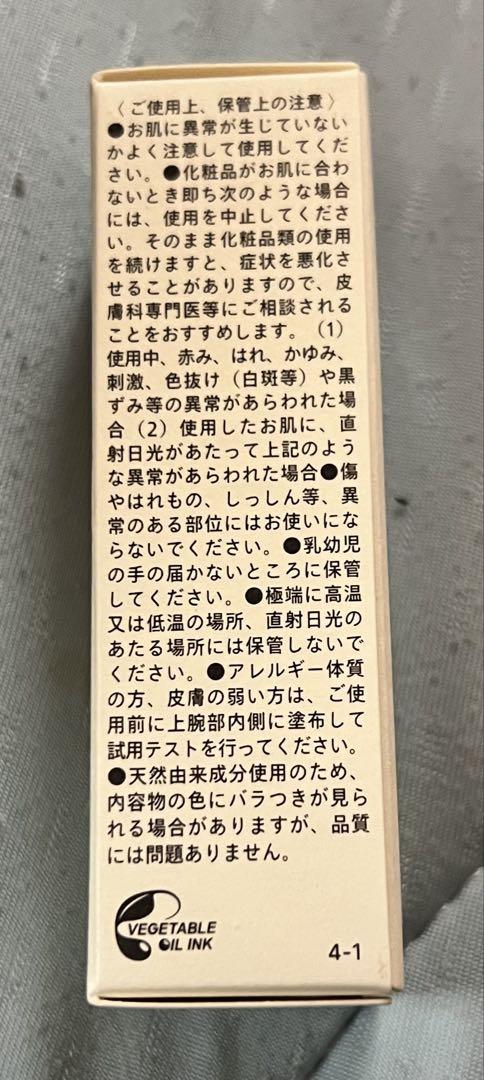 〈ご使用上、保管上の注意〉
●お肌に異常が生じていない
かよく注意して使用してくだ
さい。●化粧品がお肌に合わ
ないとき即ち次のような場合
には、使用を中止してくださ
い。そのまま化粧品類の使用
を続けますと、症状を悪化さ
せることがありますので、皮
膚科専門医等にご相談される
ことをおすすめします。（1）
使用中、赤み、はれ、かゆみ、
刺激、色抜け（白斑等）や黒
ずみ等の異常があらわれた場
合（2）使用したお肌に、直
射日光があたって上記のよう
な異常があらわれた場合●傷
やはれもの、しっしん等、異
常のある部位にはお使いにな
らないでください。●乳幼児
の手の届かないところに保管
してください。●極端に高温
又は低温の場所、直射日光の
あたる場所には保管しないで
ください。●アレルギー体質
の方、皮膚の弱い方は、ご使
用前に上腕部内側に塗布して
試用テストを行ってください。
●天然由来成分使用のため、
内容物の色にバラつきが見ら
れる場合がありますが、品質
には問題ありません。
VEGETABLE
OIL INK
4-1